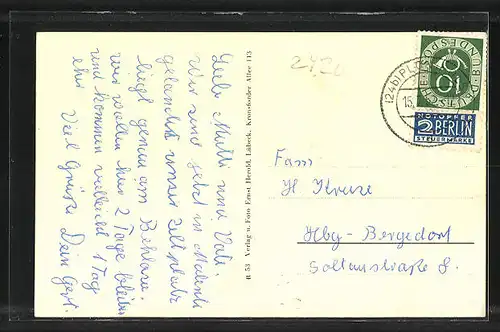 Liebe Mutti und Vati.
Wir sind jetzt in Malente
gelandet unser Zeltplatz
liegt genau am Bahnhof.
wir wollen hier 2 Tage bleiben
und kommen vielleicht 1 Tag
eher Viel Grüße Dein Gert.
R 53 Verlag u. Foto Ernst Harold, Lübeck, Kronsforder Allee 113
Fam
H Kruse
Hbg-Bergedorf
Soltaustraße 8.
(24b) PL
15.
DEUTSCHE BUNDESPOST
10
NOTOPFER
2 BERLIN
STEUERMARKE